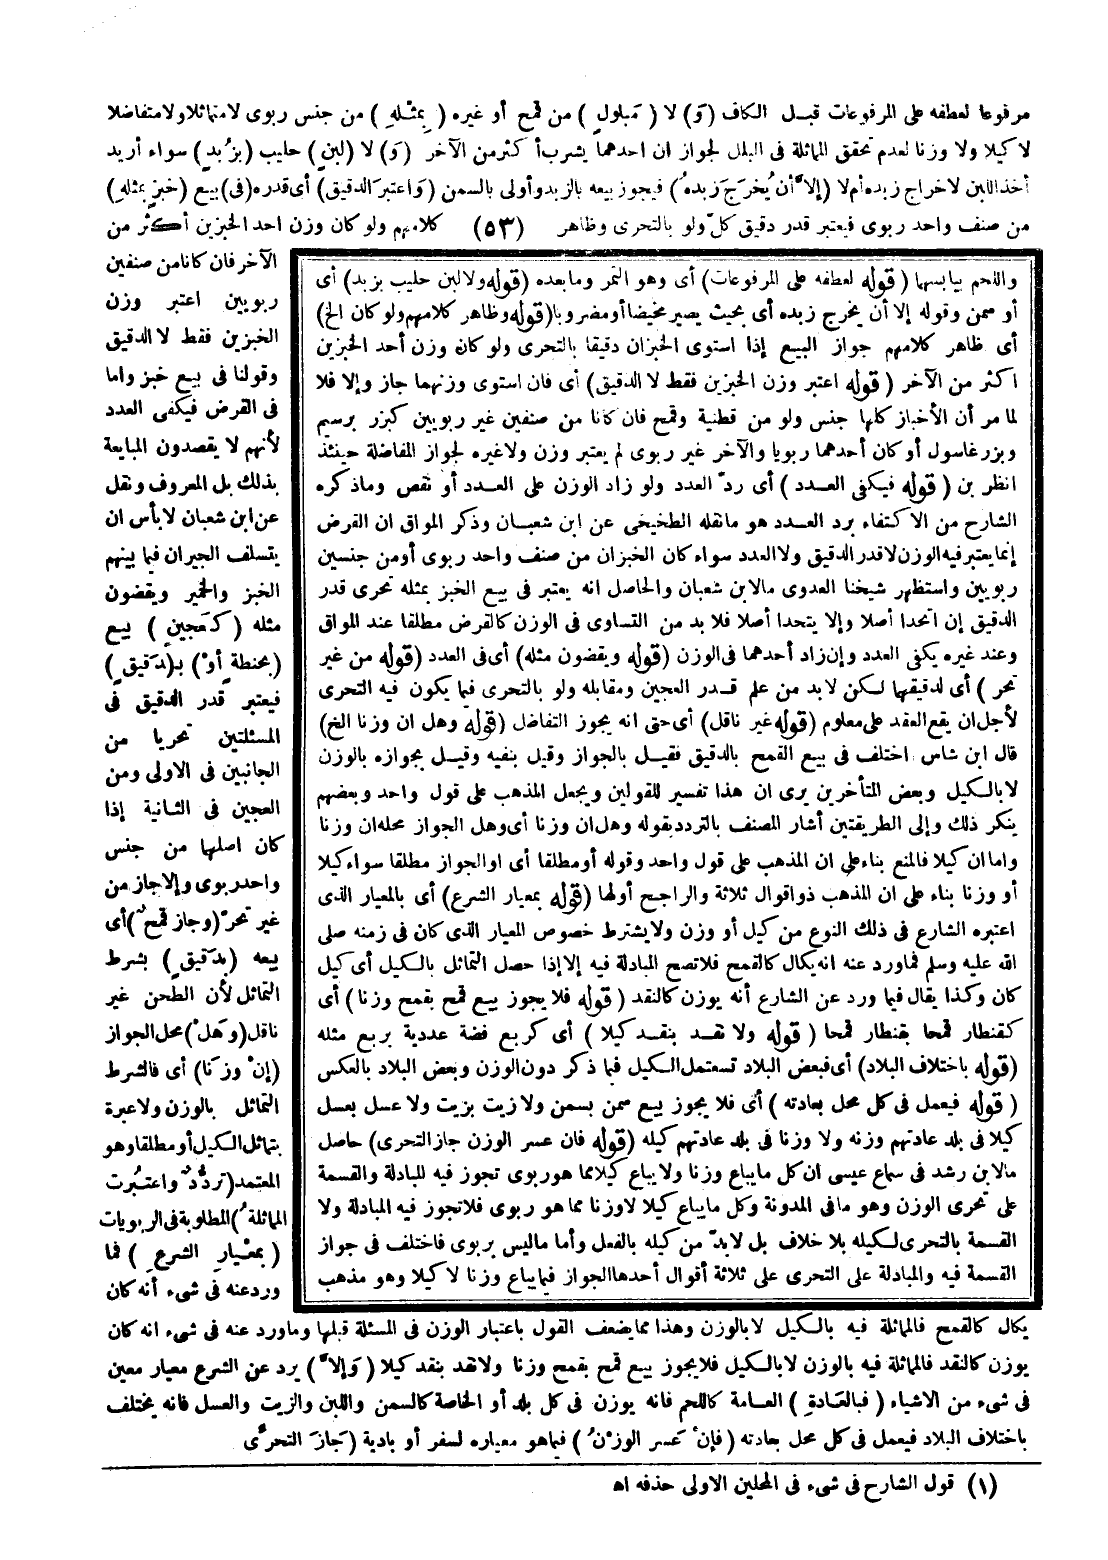 مرفوعا لعطفه على المرفوعات قبل الكاف (وَ) لا (مَبلولٍ) من قمح أو غيره (بِمثْلِهِ) من جنس ربوى لا متماثلا ولا متفاضلا
لا كيلا ولا وزنا لعدم تحقق المماثلة فى البلل لجواز ان احدهما يشرب أكثر من الآخر (وَ) لا (لبنٍ) حليب (بزُبدٍ) سواء أريد
أخذ اللبن لاخراج زبده أم لا (إلاَّ أن يُخرَجَ زبدهُ) فيجوز بيعه بالزبد وأولى بالسمن (وَاعتبرَ الدقيق) أى قدره (فى) بيع (خبزٍ بمثلهِ)
من صنف واحد ربوى فيعتبر قدر دقيق كلّ ولو بالتحرى وظاهر (٥٣) كلامهم ولو كان وزن احد الخبزين أكثر من
الآخر فان كانا من صنفين
ربويين اعتبر وزن
الخبزين فقط لا الدقيق
وقولنا فى بيع خبز واما
فى القرض فيكفى العدد
لأنهم لا يقصدون المبايعة
بذلك بل المعروف ونقل
عن ابن شعبان لا بأس ان
يتسلف الجيران فيما بينهم
الخبز والخمير ويقضون
مثله (كعَجينٍ) يبع
(بحنطةٍ أوْ) بـ(دَقيقٍ)
فيعتبر قدر الدقيق فى
المسئلتين تحريا من
الجانبين فى الاولى ومن
العجين فى الثانية إذا
كان اصلها من جنس
واحد ربوى وإلا جاز من
غير تحرّ (وجاز قمحٌ) أى
بيعه (بدَقيقٍ) بشرط
التماثل لأن الطحن غير
ناقل (وَهلْ) محل الجواز
(إنْ وزنَا) أى فالشرط
التماثل بالوزن ولا عبرة
بتماثل الكيل أو مطلقا وهو
المعتمد (تردُّدٌ واعتبُرت
المماثلةُ) المطلوبة فى الربويات
(بمعْيارِ الشرعِ) فما
ورد عنه فى شىء أنه كان
واللحم بيابسها (قوله لعطفه على المرفوعات) أى وهو التمر وما بعده (قوله ولا لبن حليب بزبد) أى
أو سمن وقوله إلا أن يخرج زبده أى بحيث يصير مخيضا أو مضروبا (قوله وظاهر كلامهم ولو كان الخ)
أى ظاهر كلامهم جواز البيع إذا استوى الخبزان دقيقا بالتحرى ولو كان وزن أحد الخبزين
اكثر من الآخر (قوله اعتبر وزن الخبزين فقط لا الدقيق) أى فان استوى وزنهما جاز وإلا فلا
لما مر أن الأخباز كلها جنس ولو من قطنية وقمح فان كانا من صنفين غير ربويين كبزر برسيم
وبزر غاسول أو كان أحدهما ربويا والآخر غير ربوى لم يعتبر وزن ولا غيره لجواز المفاضلة حينئذ
انظر بن (قوله فيكفى العدد) أى ردّ العدد ولو زاد الوزن على العدد أو نقص وما ذكره
الشارح من الاكتفاء برد العدد هو ما نقله الطخيخى عن ابن شعبان وذكر المواق ان القرض
إنما يعتبر فيه الوزن لا قدر الدقيق ولا العدد سواء كان الخبزان من صنف واحد ربوى أو من جنسين
ربويين واستظهر شيخنا العدوى ما لابن شعبان والحاصل انه يعتبر فى بيع الخبز بمثله تحرى قدر
الدقيق إن اتحدا أصلا وإلا يتحدا أصلا فلا بد من التساوى فى الوزن كالقرض مطلقا عند المواق
وعند غيره يكفى العدد وإن زاد أحدهما فى الوزن (قوله ويقضون مثله) أى فى العدد (قوله من غير
تحر) أى لدقيقها لكن لابد من علم قدر العجين ومقابله ولو بالتحرى فيما يكون فيه التحرى
لأجل ان يقع العقد على معلوم (قوله غير ناقل) أى حتى انه يجوز التفاضل (قوله وهل ان وزنا الخ)
قال ابن شاس اختلف فى بيع القمح بالدقيق فقيل بالجواز وقيل بنفيه وقيل بجوازه بالوزن
لا بالكيل وبعض المتأخرين يرى ان هذا تفسير للقولين ويجعل المذهب على قول واحد وبعضهم
ينكر ذلك وإلى الطريقتين أشار المصنف بالتردد بقوله وهل ان وزنا أى وهل الجواز محله ان وزنا
واما ان كيلا فالمنع بناء على ان المذهب على قول واحد وقوله أو مطلقا أى او الجواز مطلقا سواء كيلا
أو وزنا بناء على ان المذهب ذو اقوال ثلاثة والراجح أولها (قوله بمعيار الشرع) أى بالمعيار الذى
اعتبره الشارع فى ذلك النوع من كيل أو وزن ولا يشترط خصوص المعيار الذى كان فى زمنه صلى
الله عليه وسلم فما ورد عنه انه يكال كالقمح فلا تصح المبادلة فيه إلا إذا حصل التماثل بالكيل أى كيل
كان وكذا يقال فيما ورد عن الشارع أنه يوزن كالنقد (قوله فلا يجوز بيع قمح بقمح وزنا) أى
كقنطار قمحا بقنطار قمحا (قوله ولا نقد بنقد كيلا) أى كربع فضة عددية بربع مثله
(قوله باختلاف البلاد) أى فبعض البلاد تستعمل الكيل فيما ذكر دون الوزن وبعض البلاد بالعكس
(قوله فيعمل فى كل محل بعادته) أى فلا يجوز بيع سمن بسمن ولا زيت بزيت ولا عسل بعسل
كيلا فى بلد عادتهم وزنه ولا وزنا فى بلد عادتهم كيله (قوله فان عسر الوزن جاز التحرى) حاصل
ما لابن رشد فى سماع عيسى ان كل ما يباع وزنا ولا يباع كيلا مما هو ربوى تجوز فيه المبادلة والقسمة
على تحرى الوزن وهو ما فى المدونة وكل ما يباع كيلا لا وزنا مما هو ربوى فلا تجوز فيه المبادلة ولا
القسمة بالتحرى لكيله بلا خلاف بل لابدّ من كيله بالفعل وأما ما ليس بربوى فاختلف فى جواز
القسمة فيه والمبادلة على التحرى على ثلاثة أقوال أحدها الجواز فيما يباع وزنا لا كيلا وهو مذهب
يكال كالقمح فالمماثلة فيه بالكيل لا بالوزن وهذا مما يضعف القول باعتبار الوزن فى المسئلة قبلها وما ورد عنه فى شىء انه كان
يوزن كالنقد فالمماثلة فيه بالوزن لا بالكيل فلا يجوز بيع قمح بقمح وزنا ولا نقد بنقد كيلا (وَإلاَّ) يرد عن الشرع معيار معين
فى شىء من الاشياء (فبالعَادةِ) العامة كاللحم فانه يوزن فى كل بلد أو الخاصة كالسمن واللبن والزيت والعسل فانه يختلف
باختلاف البلاد فيعمل فى كل محل بعادته (فإنْ عَسر الوزْنُ) فيما هو معياره لسفر أو بادية (جَازَ التحرِّى
(١) قول الشارح فى شىء فى المحلين الاولى حذفه اه